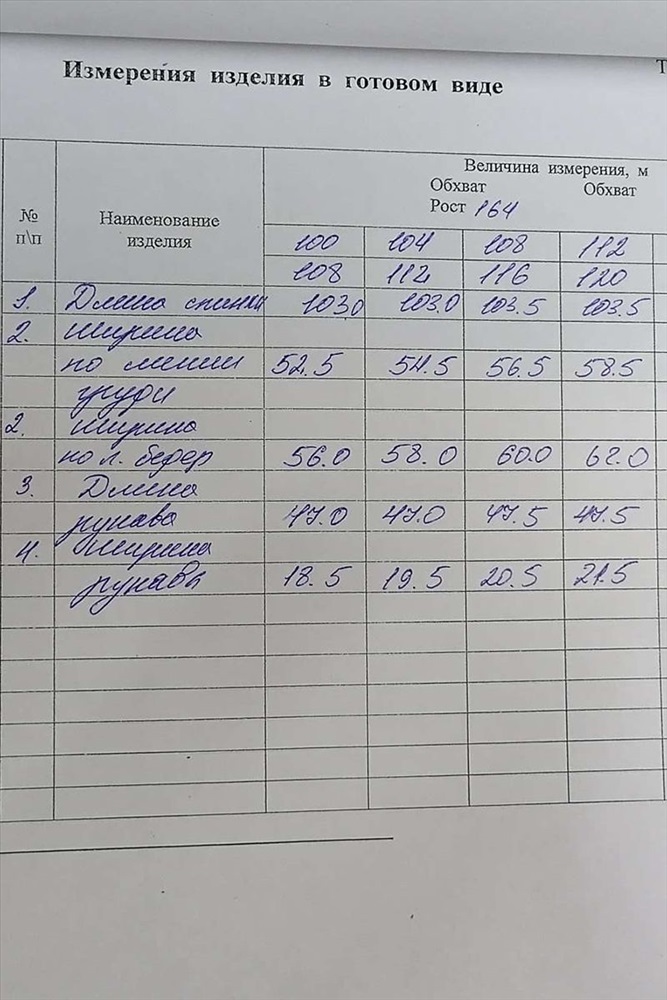 Т
Измерения изделия в готовом виде
№ п\п
Наименование изделия
Величина измерения, м
Обхват Обхват
Рост 164
100 104 108 112
108 112 116 120
1. Длина спинки 103.0 103.0 103.5 103.5
2. ширина
по линии 52.5 54.5 56.5 58.5
груди
2. ширина
по л. бедер 56.0 58.0 60.0 62.0
3. Длина
рукава 47.0 47.0 47.5 47.5
4. ширина
рукава 18.5 19.5 20.5 21.5